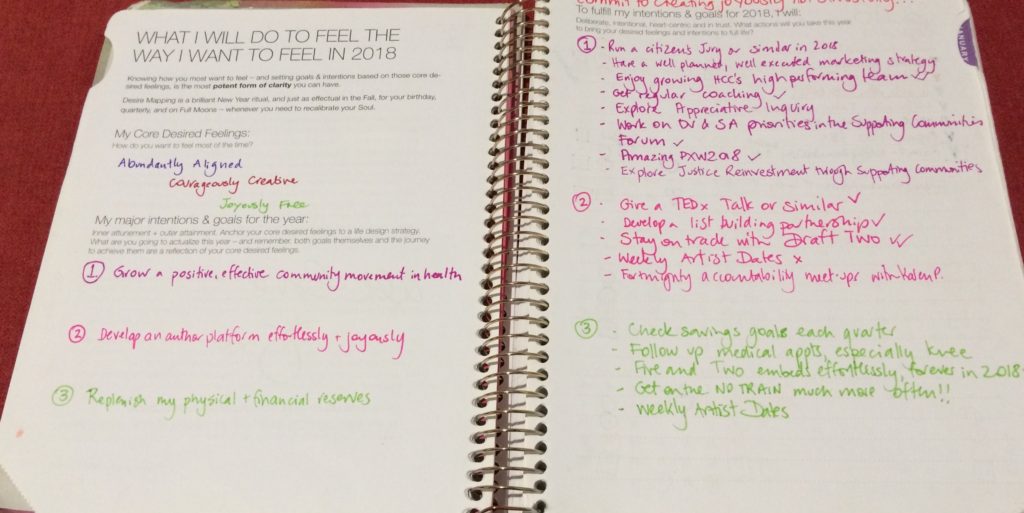 WHAT I WILL DO TO FEEL THE
WAY I WANT TO FEEL IN 2018
Knowing how you most want to feel – and setting goals & intentions based on those core de-
sired feelings, is the most potent form of clarity you can have.
Desire Mapping is a brilliant New Year ritual, and just as effectual in the Fall, for your birthday,
quarterly, and on Full Moons – whenever you need to recalibrate your Soul.
My Core Desired Feelings:
How do you want to feel most of the time?
Abundantly Aligned
Courageously Creative
Joyously Free
My major intentions & goals for the year:
Inner attunement + outer attainment. Anchor your core desired feelings to a life design strategy.
What are you going to actualize this year – and remember: both goals themselves and the journey
to achieve them are a reflection of your core desired feelings.
① Grow a positive, effective community movement in health
② Develop an author platform effortlessly + joyously
③ Replenish my physical + financial reserves
commit to creating joyously
To fulfill my intentions & goals for 2018, I will:
Deliberate, intentional, heart-centric and in trust. What actions will you take this year
to bring your desired feelings and intentions to full life?
JANUARY
① - Run a citizen's Jury or similar in 2018
- Have a well planned, well executed marketing strategy
- Enjoy growing HCC's high performing team ✓✓
- Get regular coaching ✓
- Explore Appreciative Inquiry
- Work on DV & SA priorities in the Supporting Communities
Forum ✓
- Amazing PXW2018 ✓
- Explore Justice Reinvestment through Supporting Communities
② - Give a TEDx Talk or similar ✓
- Develop a list building partnership ✓
- Stay on track with Draft Two ✓✓
- Weekly Artist Dates x
- Fortnightly accountability meet-ups with Karen P.
③ - Check savings goals each quarter
- Follow up medical appts, especially knee
- Five and Two embeds effortlessly, forever in 2018
- Get on the NO TRAIN much more often!!
- Weekly Artist Dates